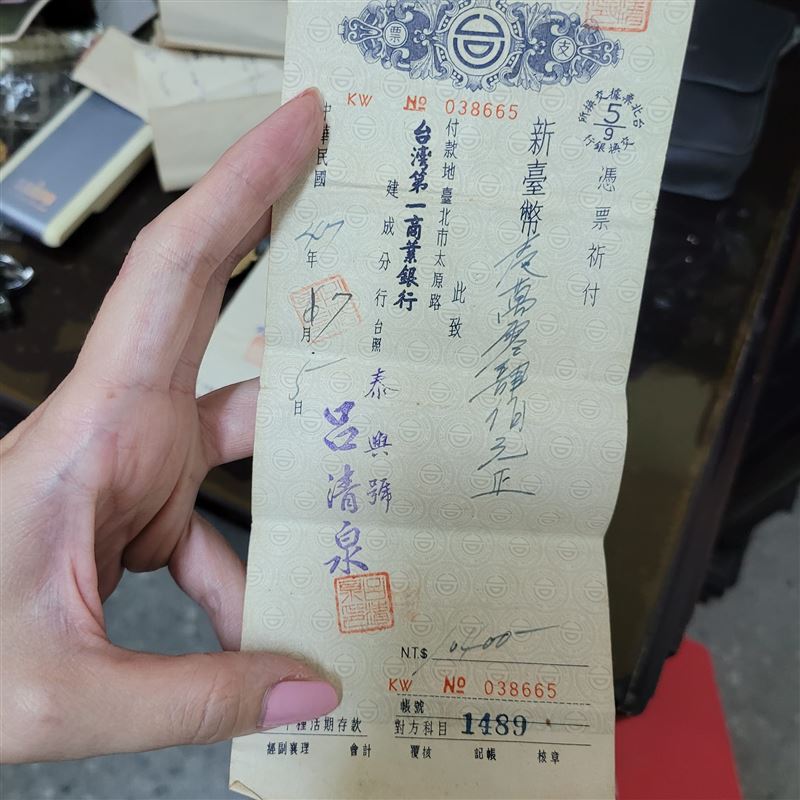 票
支
KW № 038665
台北票據交換所
5/9
交換銀行
憑票祈付
新臺幣壹萬零肆佰元正
此致
付款地臺北市太原路
台灣第一商業銀行
建成分行台照
泰興號
呂清泉
中華民國47年 月5日
NT.$
KW № 038665
帳號
種活期存款
對方科目 1489
經副襄理 會計 覆核 記帳 核章